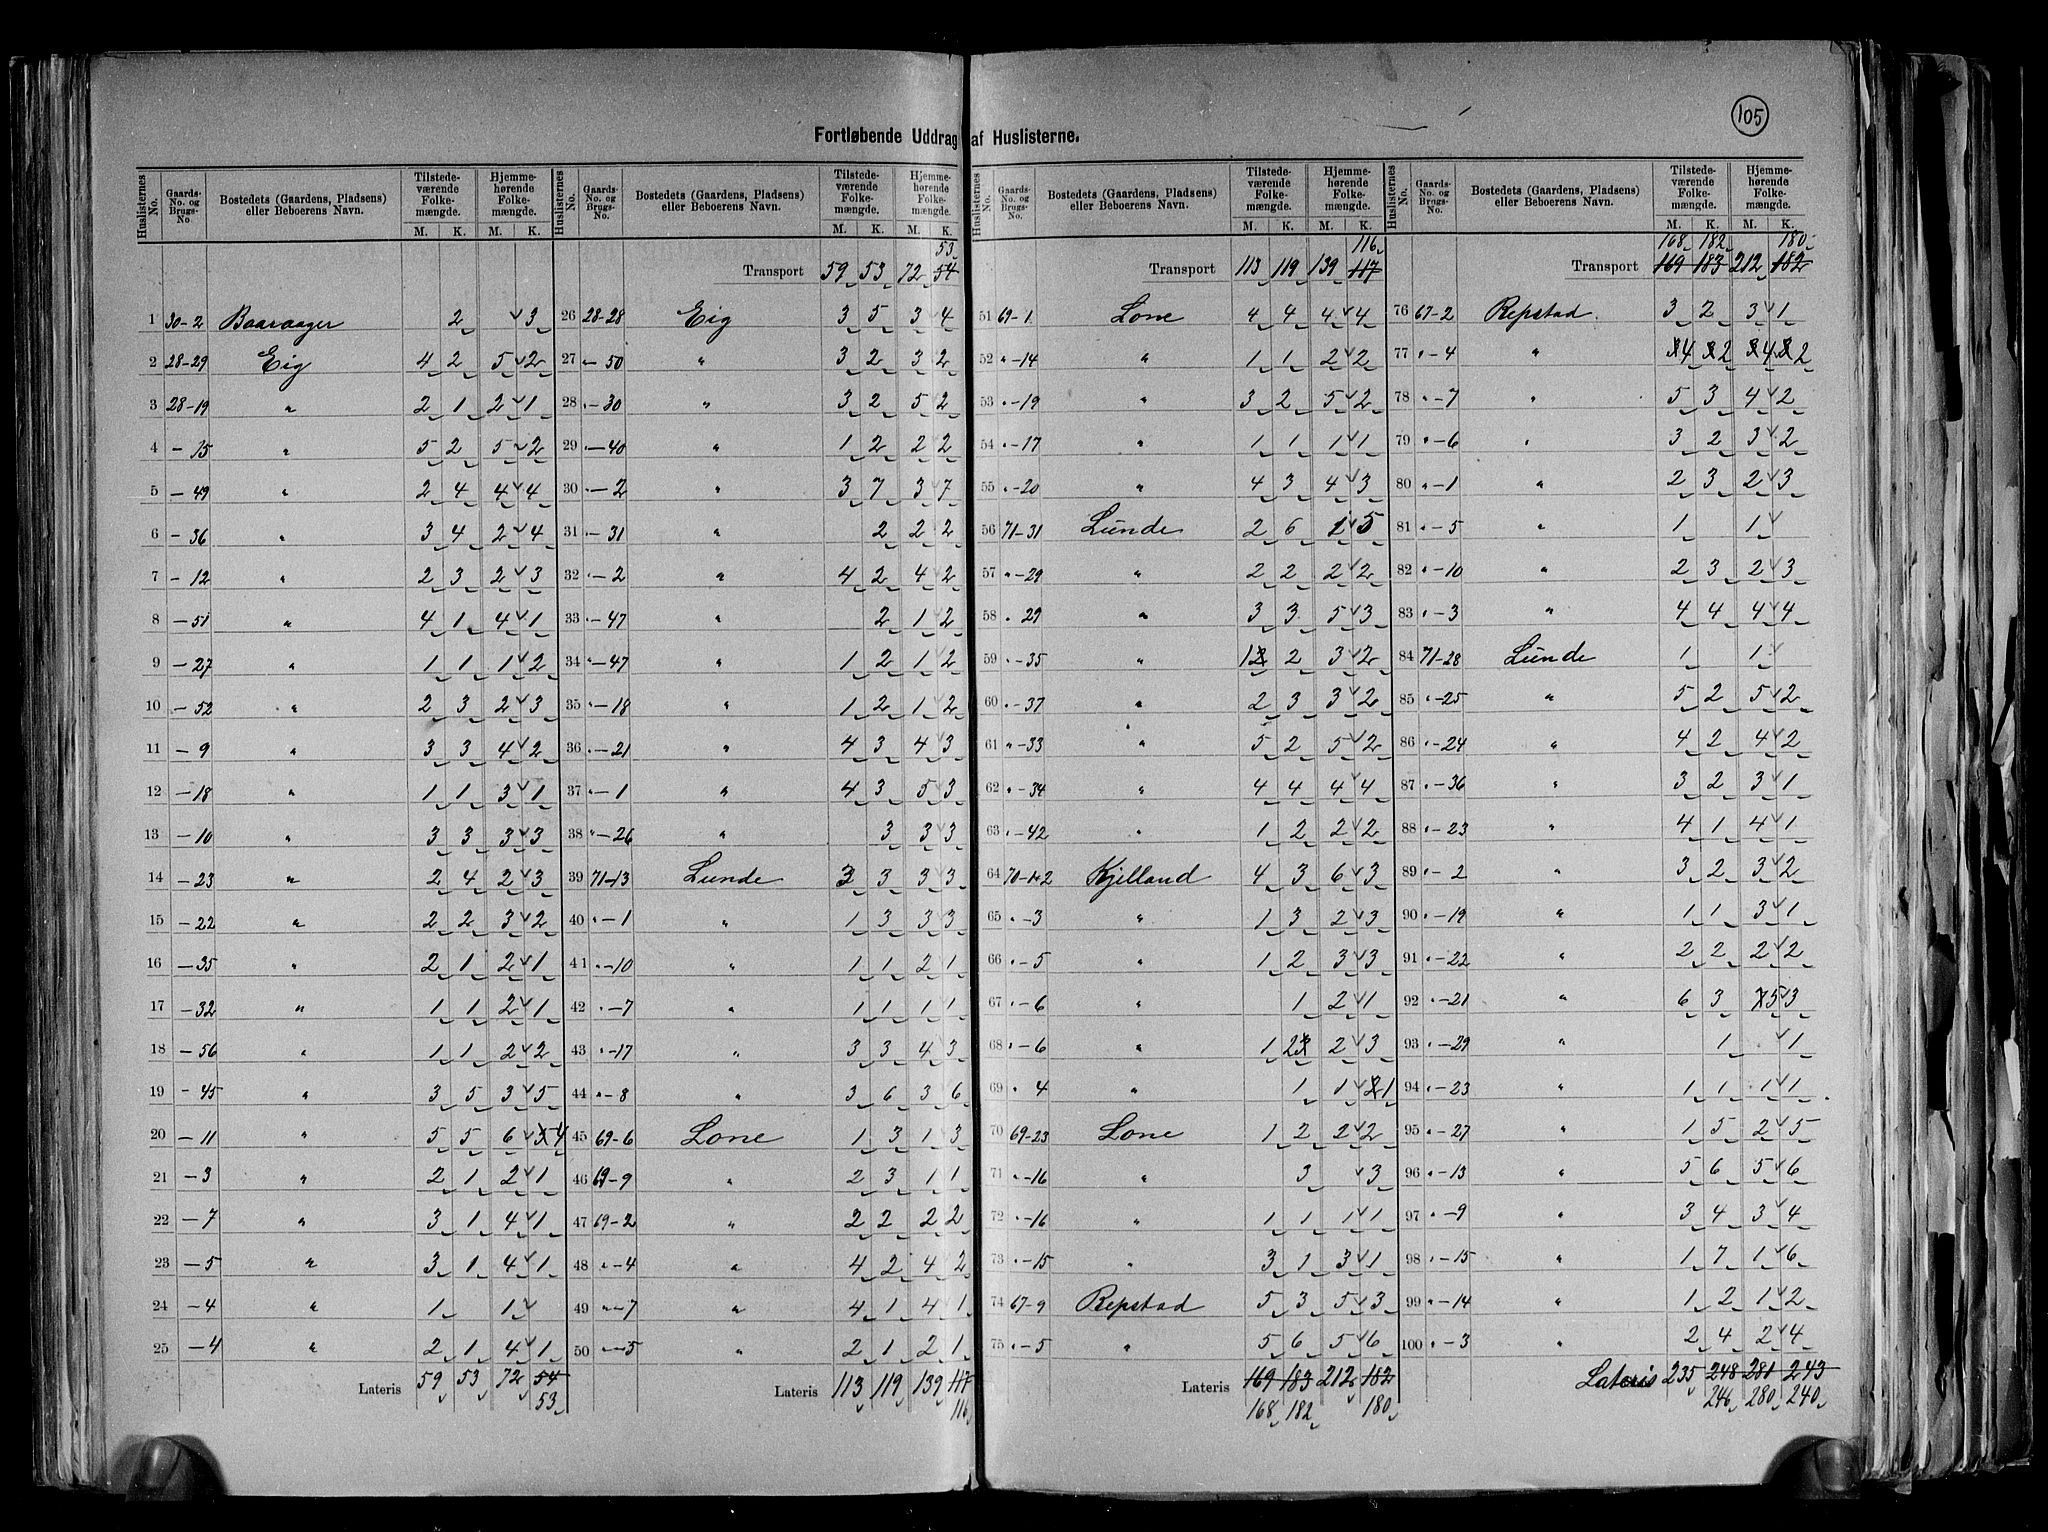 105
Fortløbende Uddrag af Huslisterne.
Huslisternes No. | Gaards-No. og Brugs-No. | Bostedets (Gaardens, Pladsens) eller Beboerens Navn. | Tilstedeværende Folkemængde. M. K. | Hjemmehørende Folkemængde. M. K.
1 30-2 Baaraager 2 3
2 28-29 Eig 4 2 5 2
3 28-19 " 2 1 2 1
4 -15 " 5 2 5 2
5 -49 " 2 4 4 4
6 -36 " 3 4 2 4
7 -12 " 2 3 2 3
8 -51 " 4 1 4 1
9 -27 " 1 1 1 2
10 -52 " 2 3 2 3
11 -9 " 3 3 4 2
12 -18 " 1 1 3 1
13 -10 " 3 3 3 3
14 -23 " 2 4 2 3
15 -22 " 2 2 3 2
16 -35 " 2 1 2 1
17 -32 " 1 1 2 1
18 -56 " 1 1 2 2
19 -45 " 3 5 3 5
20 -11 " 5 5 6 4
21 -3 " 2 1 2 1
22 -7 " 3 1 4 1
23 -5 " 3 1 4 1
24 -4 " 1 1
25 -4 " 2 1 4 1
Lateris 59 53 72 54
53
Huslisternes No. | Gaards-No. og Brugs-No. | Bostedets (Gaardens, Pladsens) eller Beboerens Navn. | Tilstedeværende Folkemængde. M. K. | Hjemmehørende Folkemængde. M. K.
53
Transport 59 53 72 54
26 28-28 Eig 3 5 3 4
27 "-50 " 3 2 3 2
28 "-30 " 3 2 5 2
29 "-40 " 1 2 2 2
30 "-2 " 3 7 3 7
31 "-31 " 2 2 2
32 "-2 " 4 2 4 2
33 "-47 " 2 1 2
34 "-47 " 1 2 1 2
35 "-18 " 1 2 1 2
36 "-21 " 4 3 4 3
37 "-1 " 4 3 5 3
38 "-26 " 3 3 3
39 71-13 Lunde 3 3 3
40 "-1 " 1 3 3 3
41 "-10 " 1 1 2 1
42 "-7 " 1 1 1 1
43 "-17 " 3 3 4 3
44 "-8 " 3 6 3 6
45 69-6 Lone 1 3 1 3
46 69-9 " 2 3 1 1
47 69-2 " 2 2 2 2
48 "-4 " 4 2 4 2
49 "-7 " 4 1 4 1
50 "-5 " 2 1 2 1
Lateris 113 119 139 117
116
Huslisternes No. | Gaards-No. og Brugs-No. | Bostedets (Gaardens, Pladsens) eller Beboerens Navn. | Tilstedeværende Folkemængde. M. K. | Hjemmehørende Folkemængde. M. K.
116
Transport 113 119 139 117
51 69-1 Lone 4 4 4 4
52 "-14 " 1 1 2 2
53 "-19 " 3 2 5 2
54 "-17 " 1 1 1 1
55 "-20 " 4 3 4 3
56 71-31 Lunde 2 6 1 5
57 "-29 " 2 2 2 2
58 " 29 " 3 3 5 3
59 "-35 " 1 2 3 2
60 "-37 " 2 3 3 2
61 "-33 " 5 2 5 2
62 "-34 " 4 4 4 4
63 "-42 " 1 2 2 2
64 70-1.2 Kjelland 4 3 6 3
65 "-3 " 1 3 2 3
66 "-5 " 1 2 3 3
67 "-6 " 1 2 1
68 "-6 " 1 2 2 3
69 " 4 " 1 1 1
70 69-23 Lone 1 2 2 2
71 "-16 " 3 3
72 "-16 " 1 1 1 1
73 "-15 " 3 1 3 1
74 67-9 Repstad 5 3 5 3
75 "-5 " 5 6 5 6
Lateris 169 183 212 182
168 182 180
Huslisternes No. | Gaards-No. og Brugs-No. | Bostedets (Gaardens, Pladsens) eller Beboerens Navn. | Tilstedeværende Folkemængde. M. K. | Hjemmehørende Folkemængde. M. K.
168 182 180
Transport 169 183 212 182
76 67-2 Repstad 3 2 3 1
77 "-4 " 4 2 4 2
78 "-7 " 5 3 4 2
79 "-6 " 3 2 3 2
80 "-1 " 2 3 2 3
81 "-5 " 1 1
82 "-10 " 2 3 2 3
83 "-3 " 4 4 4 4
84 71-28 Lunde 1 1
85 "-25 " 5 2 5 2
86 "-24 " 4 2 4 2
87 "-36 " 3 2 3 1
88 "-23 " 4 1 4 1
89 "-2 " 3 2 3 2
90 "-19 " 1 1 3 1
91 "-22 " 2 2 2 2
92 "-21 " 6 3 5 3
93 "-29 " 1 1
94 "-23 " 1 1 1 1
95 "-27 " 1 5 2 5
96 "-13 " 5 6 5 6
97 "-9 " 3 4 3 4
98 "-15 " 1 7 1 6
99 "-14 " 1 2 1 2
100 "-3 " 2 4 2 4
Lateris 235 248 281 243
246 280 240